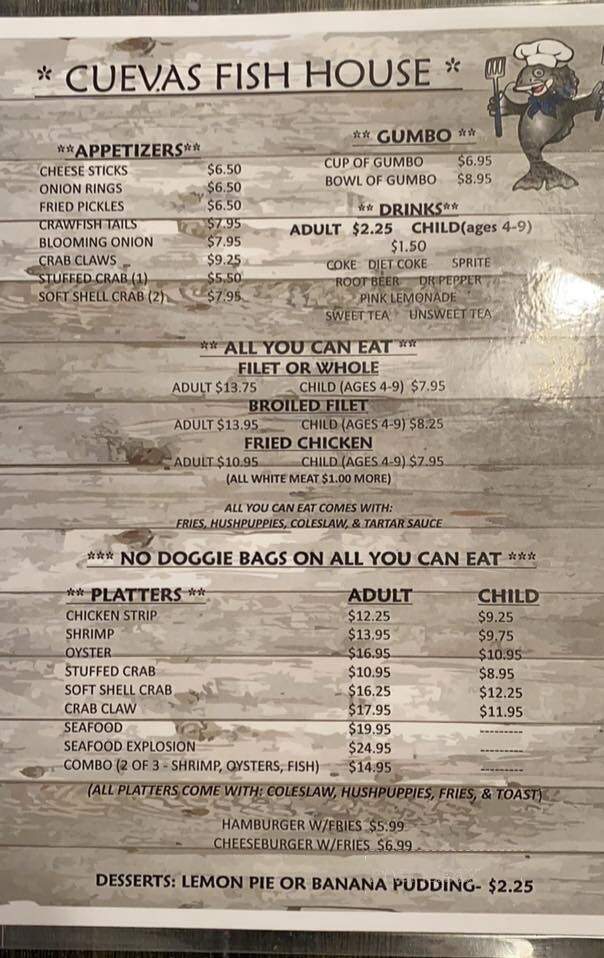 * CUEVAS FISH HOUSE *
**APPETIZERS**
CHEESE STICKS $6.50
ONION RINGS $6.50
FRIED PICKLES $6.50
CRAWFISH TAILS $7.95
BLOOMING ONION $7.95
CRAB CLAWS $9.25
STUFFED CRAB (1) $5.50
SOFT SHELL CRAB (2) $7.95
** GUMBO **
CUP OF GUMBO $6.95
BOWL OF GUMBO $8.95
** DRINKS**
ADULT $2.25 CHILD(ages 4-9)
$1.50
COKE DIET COKE SPRITE
ROOT BEER DR PEPPER
PINK LEMONADE
SWEET TEA UNSWEET TEA
** ALL YOU CAN EAT **
FILET OR WHOLE
ADULT $13.75 CHILD (AGES 4-9) $7.95
BROILED FILET
ADULT $13.95 CHILD (AGES 4-9) $8.25
FRIED CHICKEN
ADULT $10.95 CHILD (AGES 4-9) $7.95
(ALL WHITE MEAT $1.00 MORE)
ALL YOU CAN EAT COMES WITH:
FRIES, HUSHPUPPIES, COLESLAW, & TARTAR SAUCE
*** NO DOGGIE BAGS ON ALL YOU CAN EAT ***
** PLATTERS ** ADULT CHILD
CHICKEN STRIP $12.25 $9.25
SHRIMP $13.95 $9.75
OYSTER $16.95 $10.95
STUFFED CRAB $10.95 $8.95
SOFT SHELL CRAB $16.25 $12.25
CRAB CLAW $17.95 $11.95
SEAFOOD $19.95 ---------
SEAFOOD EXPLOSION $24.95 ---------
COMBO (2 OF 3 - SHRIMP, OYSTERS, FISH) $14.95 ---------
(ALL PLATTERS COME WITH: COLESLAW, HUSHPUPPIES, FRIES, & TOAST)
HAMBURGER W/FRIES $5.99
CHEESEBURGER W/FRIES $6.99
DESSERTS: LEMON PIE OR BANANA PUDDING- $2.25